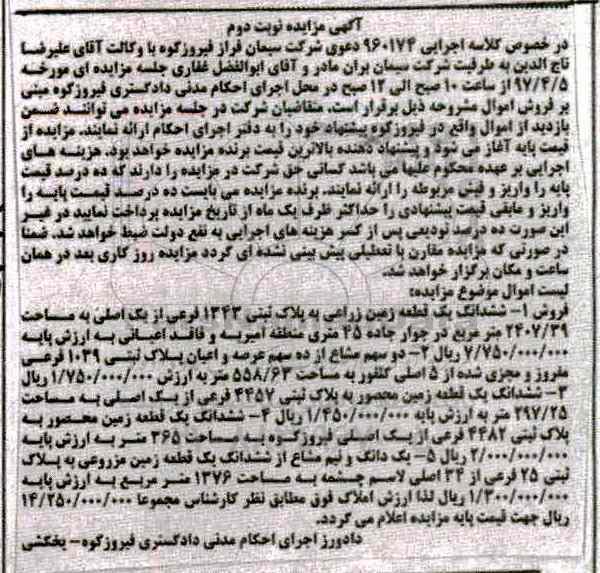 آگهی مزایده نوبت دوم
در خصوص کلاسه اجرایی ۹۶۰۱۷۴ دعوی شرکت سیمان فراز فیروزکوه با وکالت آقای علیرضا
تاج الدین به طرفیت شرکت سیمان بران مادر و آقای ابوالفضل غفاری جلسه مزایده ای مورخه
۹۷/۴/۵ از ساعت ۱۰ صبح الی ۱۲ صبح در محل اجرای احکام مدنی دادگستری فیروزکوه مبنی
بر فروش اموال مشروحه ذیل برقرار است. متقاضیان شرکت در جلسه مزایده می توانند ضمن
بازدید از اموال واقع در فیروزکوه پیشنهاد خود را به دفتر اجرای احکام ارائه نمایند. مزایده از
قیمت پایه آغاز می شود و پیشنهاد دهنده بالاترین قیمت برنده مزایده خواهد بود. هزینه های
اجرایی بر عهده محکوم علیها می باشد کسانی حق شرکت در مزایده را دارند که ده درصد قیمت
پایه را واریز و فیش مربوطه را ارائه نمایند. برنده مزایده می بایست ده درصد قیمت پایه را
واریز و مابقی قیمت پیشنهادی را حداکثر ظرف یک ماه از تاریخ مزایده پرداخت نمایید در غیر
این صورت ده درصد تودیعی پس از کسر هزینه های اجرایی به نفع دولت ضبط خواهد شد. ضمنا
در صورتی که مزایده مقارن با تعطیلی پیش بینی نشده ای گردد مزایده روز کاری بعد در همان
ساعت و مکان برگزار خواهد شد.
لیست اموال موضوع مزایده:
فروش ۱- ششدانگ یک قطعه زمین زراعی به پلاک ثبتی ۱۳۴۳ فرعی از یک اصلی به مساحت
۲۴۰۷/۳۹ متر مربع در جوار جاده ۴۵ متری منطقه امیریه و فاقد اعیانی به ارزش پایه
۷/۷۵۰/۰۰۰/۰۰۰ ریال ۲- دو سهم مشاع از ده سهم عرصه و اعیان پلاک ثبتی ۱۰۳۹ فرعی
مفروز و مجزی شده از ۵ اصلی کلفور به مساحت ۵۵۸/۶۳ متر به ارزش ۱/۷۵۰/۰۰۰/۰۰۰ ریال
۳- ششدانگ یک قطعه زمین محصور به پلاک ثبتی ۴۴۵۷ فرعی از یک اصلی به مساحت
۲۹۷/۲۵ متر به ارزش پایه ۱/۴۵۰/۰۰۰/۰۰۰ ریال ۴- ششدانگ یک قطعه زمین محصور به
پلاک ثبتی ۴۴۸۲ فرعی از یک اصلی فیروزکوه به مساحت ۳۶۵ متر به ارزش پایه
۲/۰۰۰/۰۰۰/۰۰۰ ریال ۵- یک دانگ و نیم مشاع از ششدانگ یک قطعه زمین مزروعی به پلاک
ثبتی ۲۵ فرعی از ۳۴ اصلی لاسم چشمه به مساحت ۱۳۷۶ متر مربع به ارزش پایه
۱/۳۰۰/۰۰۰/۰۰۰ ریال لذا ارزش املاک فوق مطابق نظر کارشناس مجموعا ۱۴/۲۵۰/۰۰۰/۰۰۰
ریال جهت قیمت پایه مزایده اعلام می گردد.
دادورز اجرای احکام مدنی دادگستری فیروزکوه- یخکشی